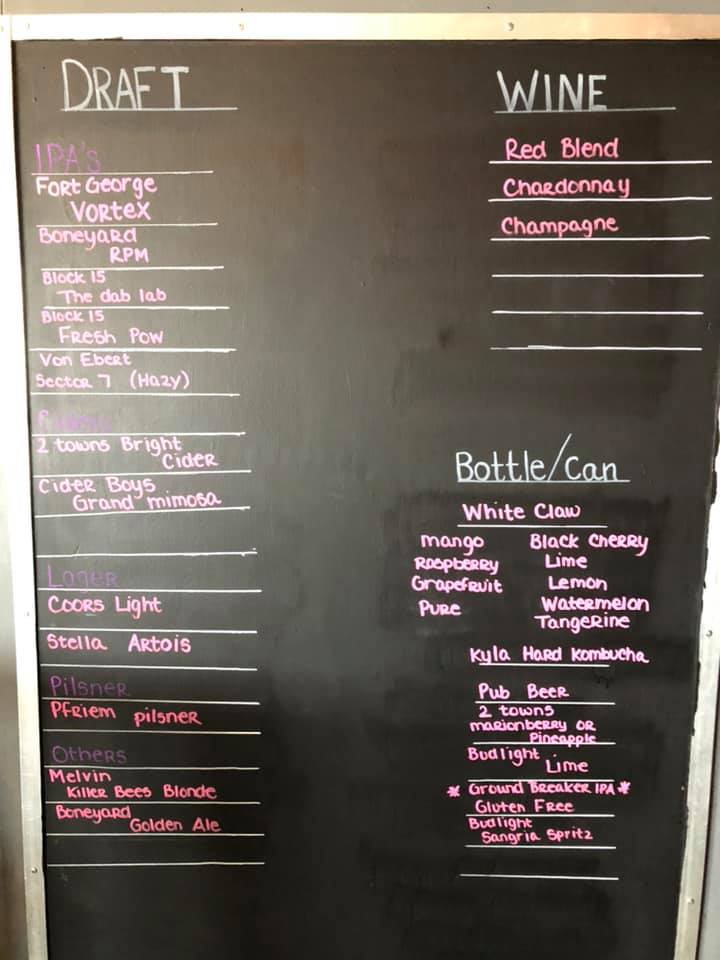 DRAFT
IPA's
Fort George
Vortex
Boneyard
RPM
Block 15
The dab lab
Block 15
Fresh Pow
Von Ebert
Sector 7 (Hazy)
2 towns Bright
Cider
Cider Boys
Grand mimosa
Lager
Coors Light
Stella Artois
Pilsner
Pfriem pilsner
Others
Melvin
Killer Bees Blonde
Boneyard
Golden Ale
WINE
Red Blend
Chardonnay
Champagne
Bottle/Can
White Claw
mango Black Cherry
Raspberry Lime
Grapefruit Lemon
Pure Watermelon
Tangerine
Kyla Hard Kombucha
Pub Beer
2 towns
marionberry OR
Pineapple
Budlight
Lime
* Ground Breaker IPA *
Gluten Free
Budlight
Sangria Spritz